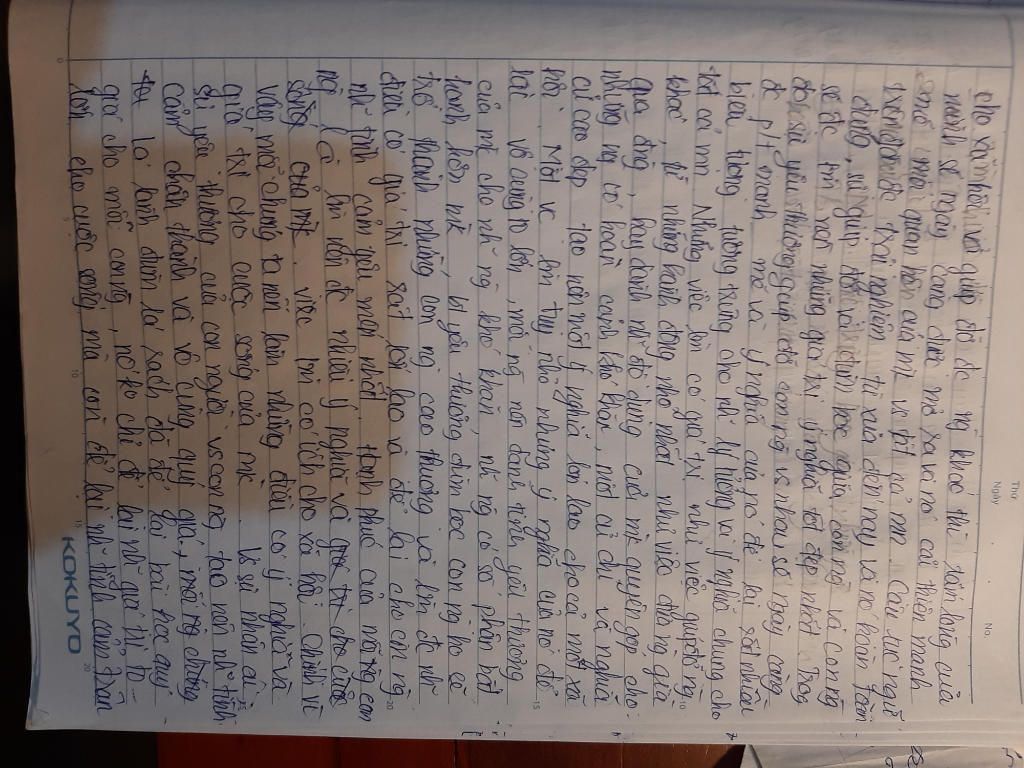 Thứ
Ngày
No.
cho xã hội, và giúp đỡ đc ng khác thì tấm lòng của
mình sẽ ngày càng được mở ra và nó cải thiện mạnh
mối quan hệ của mk vs tất cả mn. Câu tục ngữ
đã đc trải nghiệm từ xưa đến nay và nó hoàn toàn
đúng, sự giúp đỡ và đùm bọc giữa con ng và con ng
sẽ đc mn nói những giá trị ý nghĩa tốt đẹp nhất. Trong
đó sự yêu thương giúp đỡ con ng vs nhau sẽ ngày càng
đc p/t mạnh mẽ và ý nghĩa của nó để lại rất nhiều
biểu tượng tượng trưng cho nh lý tưởng và ý nghĩa chung cho
tất cả mn. Những việc làm có giá trị như việc giúp đỡ ng
khác, từ những hành động nhỏ nhất như việc đưa ng già
qua đường, hay dành nh đồ dùng cũ mk quyên góp cho
những ng có hoàn cảnh khó khăn, một cử chỉ và nghĩa
cử cao đẹp tạo nên một ý nghĩa lớn lao cho cả một xã
hội. Một vc làm tuy nhỏ nhưng ý nghĩa của nó để
lại vô cùng to lớn, mỗi ng nên dành tình yêu thương
của mk cho nh ng khó khăn nh ng có số phận bất
hạnh hơn mk, bt yêu thương đùm bọc con ng họ sẽ
trở thành những con ng cao thượng và làm đc nh
điều có giá trị rất lớn lao và để lại cho cn ng
nh tình cảm yêu mến nhất. Hạnh phúc của mỗi ng con
ng là làm nên đc nhiều ý nghĩa và giá trị cho cuộc
sống của mk, việc làm có ích cho xã hội. Chính vì
vậy mỗi chúng ta nên làm những điều có ý nghĩa và
giá trị cho cuộc sống của mk. Vs sự nhân ái,
sự yêu thương của con người vs con ng tạo nên nh tình
cảm chân thành và vô cùng quý giá, mỗi ng chúng
ta lá lành đùm lá rách đã để lại bài học quý
giá cho mỗi con ng, nó ko chỉ để lại nh giá trị to
lớn cho cuộc sống mà còn để lại nh tình cảm chân
KOKUYO